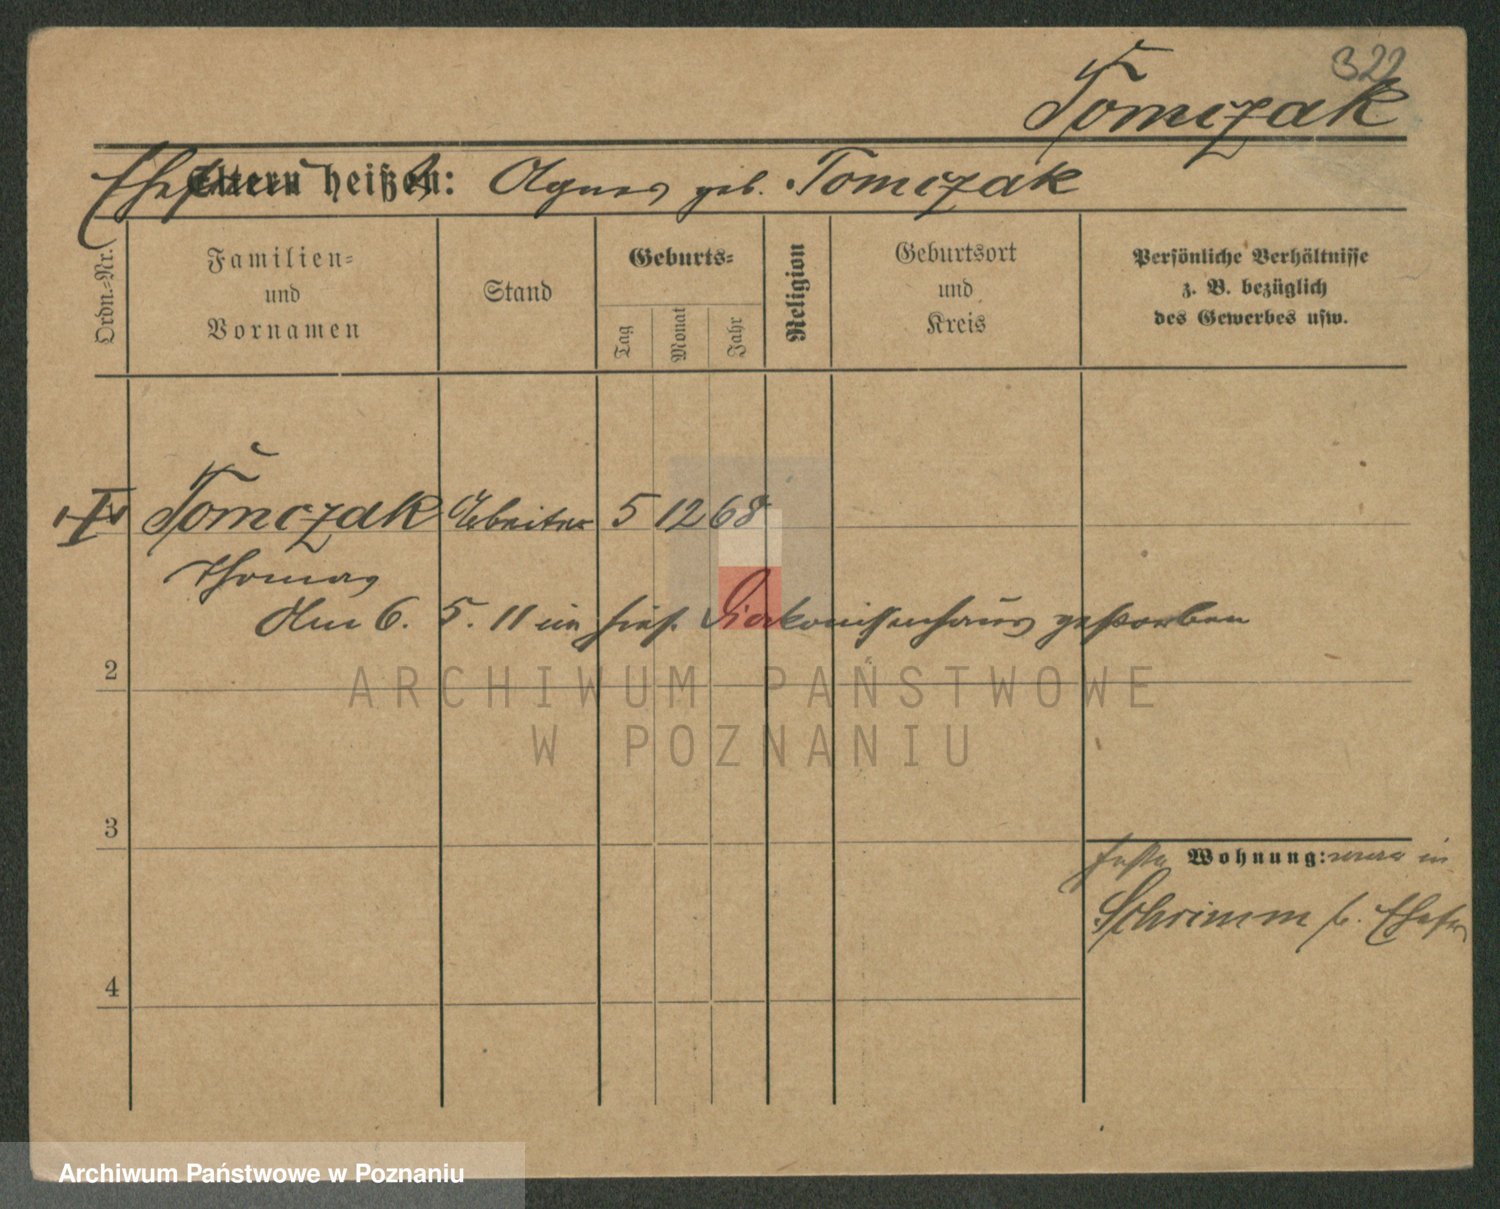 322
Tomczak
Ehefrau heißt: Agnes geb. Tomczak
Ordn.-Nr.
Familien-
und
Vornamen
Stand
Geburts-
Tag
Monat
Jahr
Religion
Geburtsort
und
Kreis
Persönliche Verhältnisse
z. B. bezüglich
des Gewerbes usw.
Tomczak Arbeiter 5 12 68
Thomas
Am 6. 5. 11 im hies. Diakonissenhaus gestorben
2
3
4
feste Wohnung: war in
Schrimm b. Ehefr
ARCHIWUM PAŃSTWOWE
W POZNANIU
Archiwum Państwowe w Poznaniu